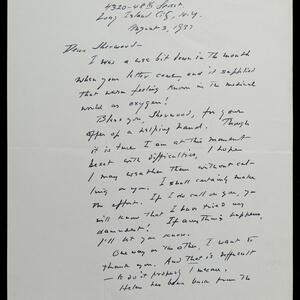 4320-48th Street.
Long Island City, N.Y.
August 3, 1937
Dear Sherwood—
I was a wee bit down in the mouth
when your letter came, and it supplied
that warm feeling known in the medical
world as oxygen!
Bless you, Sherwood, for your
offer of a helping hand. Though
it is true I am at this moment
beset with difficulties, I hope
I may weather them without cal-
ling on you. I shall certainly make
the effort. If I do call on you, you
will know that I have tried my
damndest! If anything happens,
I'll let you know.
One way or the other, I want to
thank you. And that is difficult
— to do it properly I mean.
Helen has been back from the